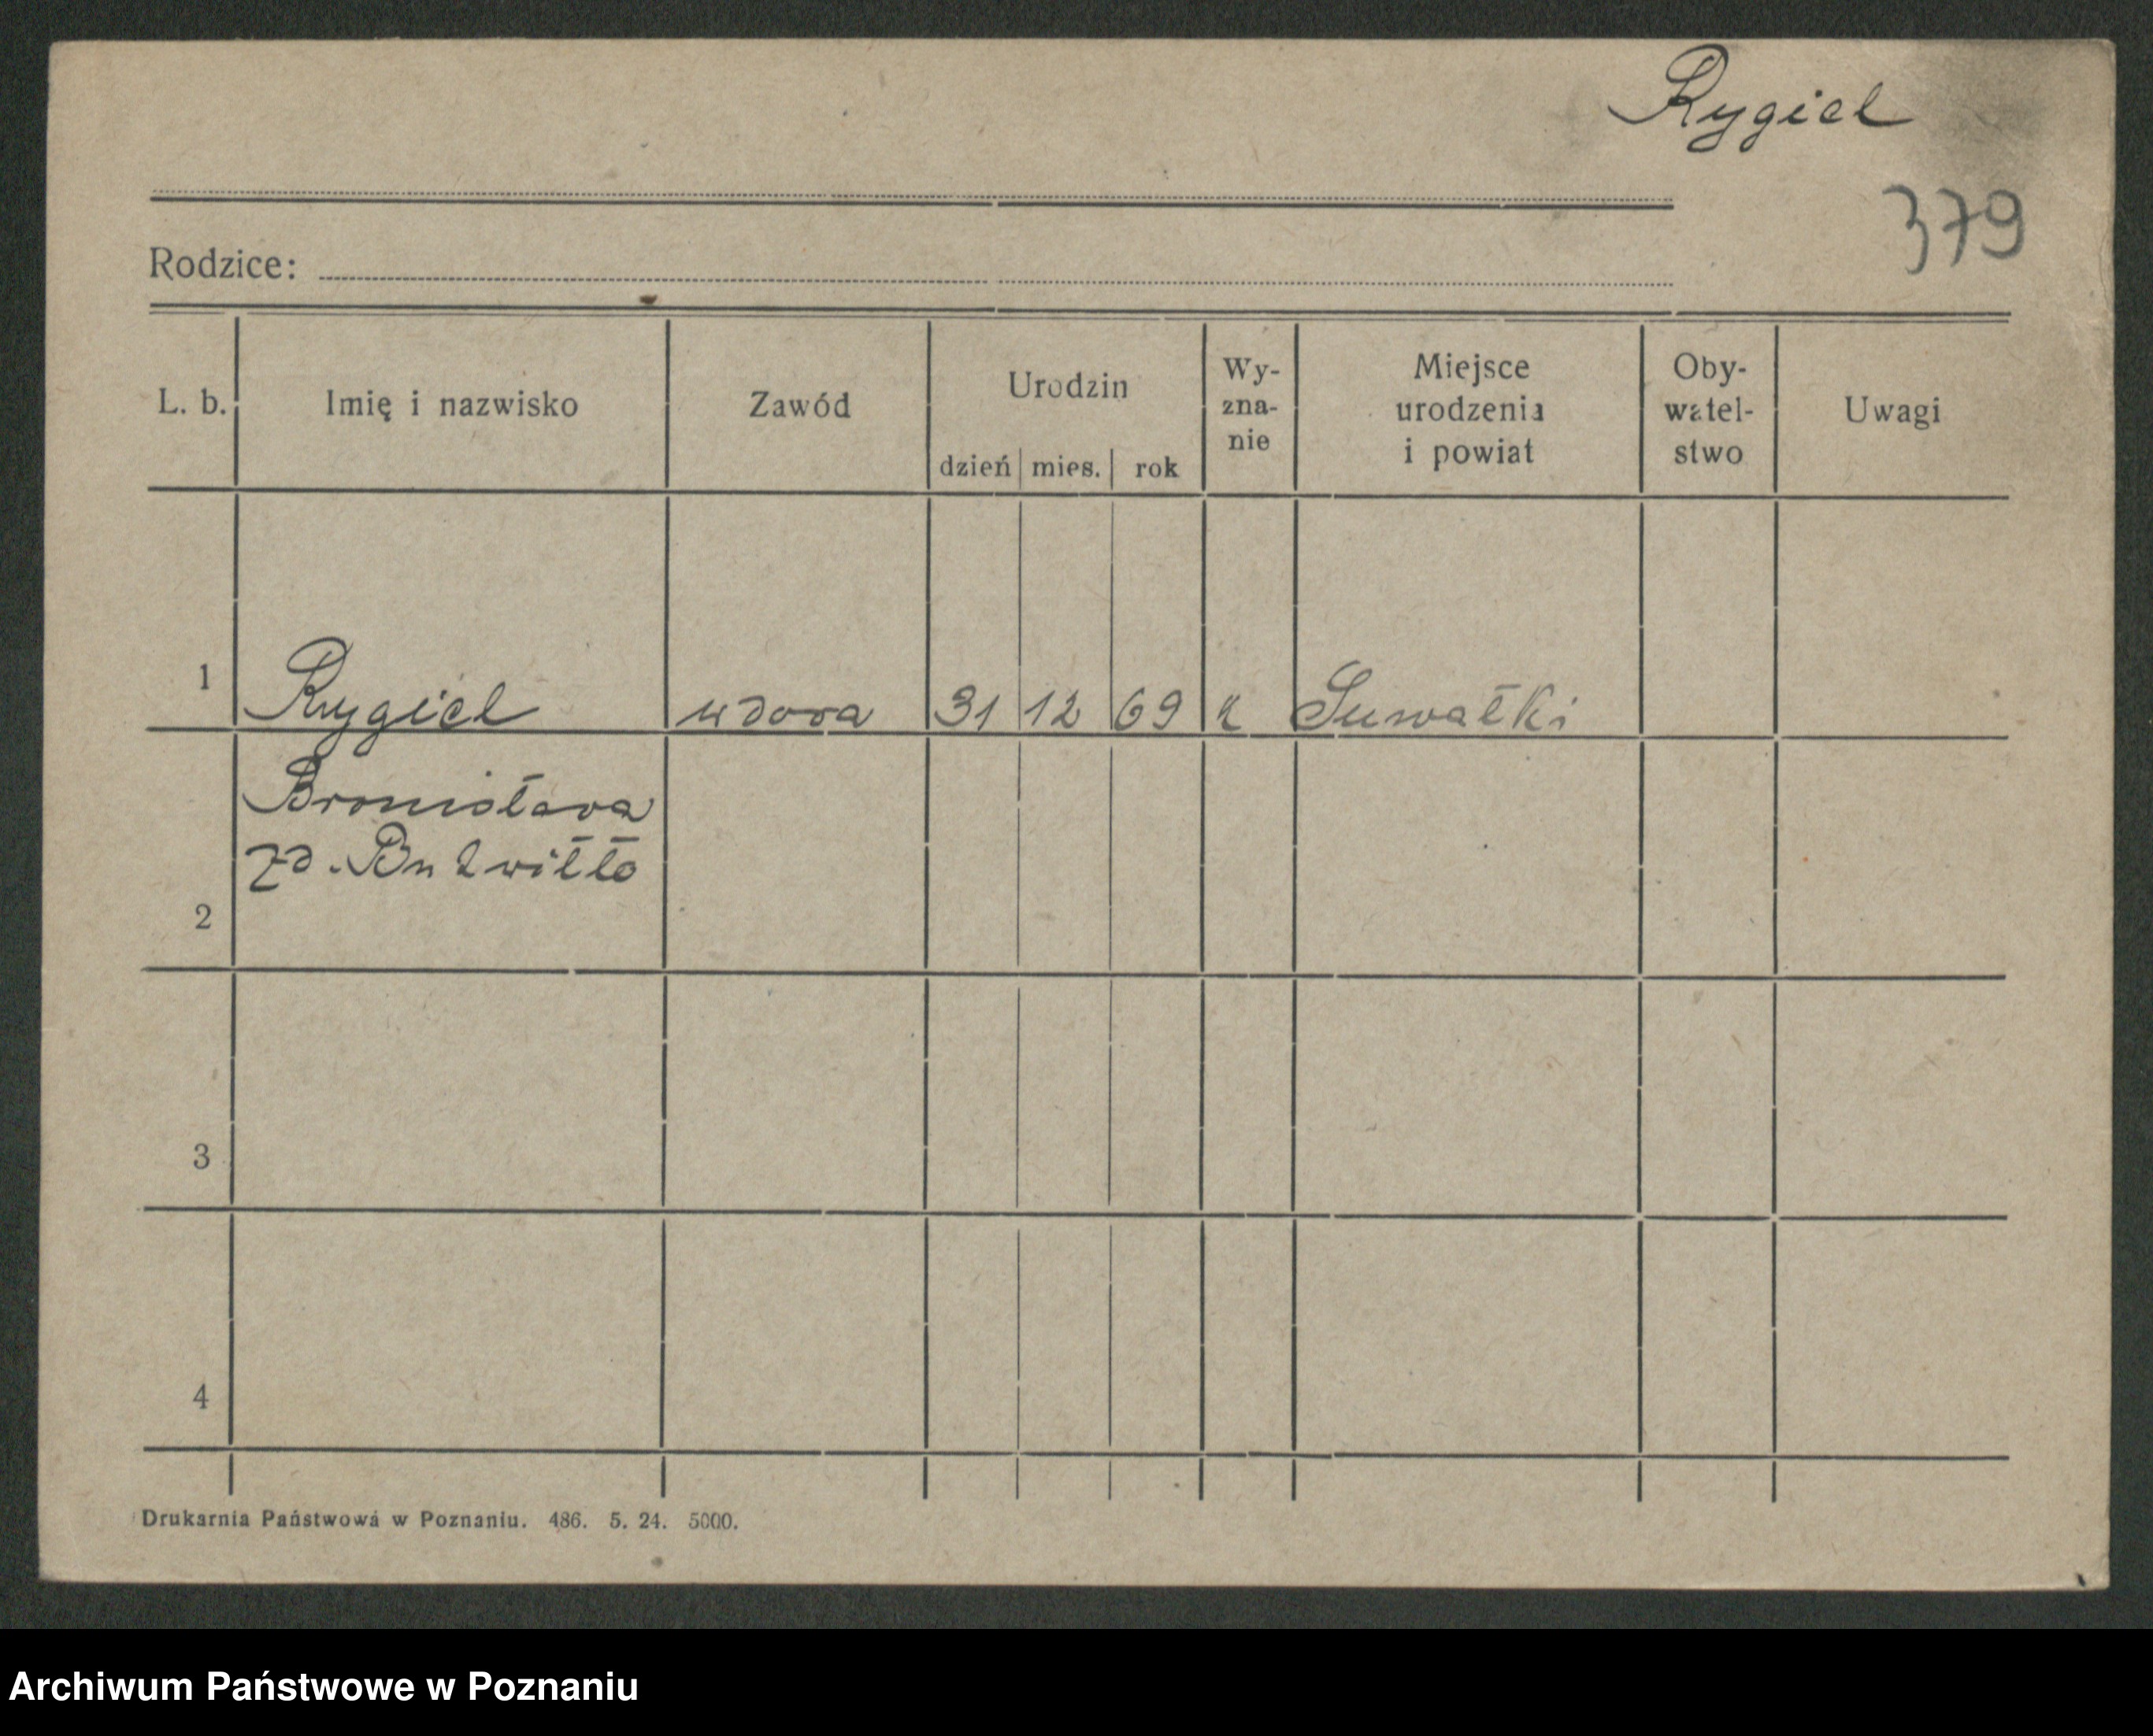 Rygiel
379
Rodzice:
L. b. Imię i nazwisko Zawód Urodzin dzień mies. rok Wy-zna-nie Miejsce urodzenia i powiat Oby-watel-stwo Uwagi
1 Rygiel wdova 31 12 69 k Suwałki
Bronisłava
zd.
2
3
4
Drukarnia Państwowa w Poznaniu. 486. 5. 24. 5000.
Archiwum Państwowe w Poznaniu